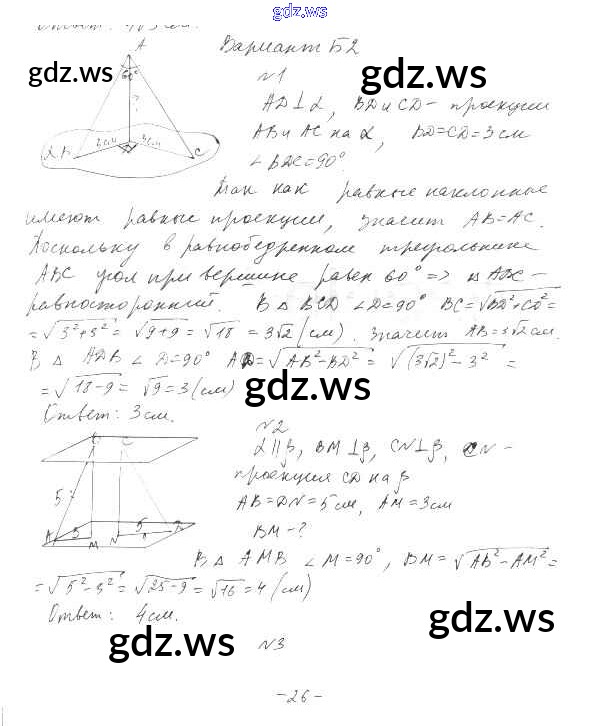 gdz.ws
Ответ: 4√3 см.
Вариант Б2
№1
A
60°
?
3см
3см
α B
C
AD⊥α, BD и CD - проекции
AB и AC на α, BD=CD=3см
∠BDC=90°
Так как равные наклонные
имеют равные проекции, значит AB=AC.
Поскольку в равнобедренном треугольнике
ABC угол при вершине равен 60° => △ABC -
равносторонний. В △BCD ∠D=90° BC=√BD²+CD²=
=√3²+3²=√9+9=√18=3√2(см). Значит AB=3√2см.
В △ADB ∠D=90° AD=√AB²-BD²=√(3√2)²-3²=
=√18-9=√9=3(см)
Ответ: 3см.
№2
α∥β, BM⊥β, CN⊥β, DN -
проекция CD на β
AB=DN=5см, AM=3см
BM-?
B
C
5
A
3
M
N
5
D
В △AMB ∠M=90°, BM=√AB²-AM²=
=√5²-3²=√25-9=√16=4(см)
Ответ: 4см.
№3
-26-
gdz.ws
gdz.ws
gdz.ws
gdz.ws
gdz.ws